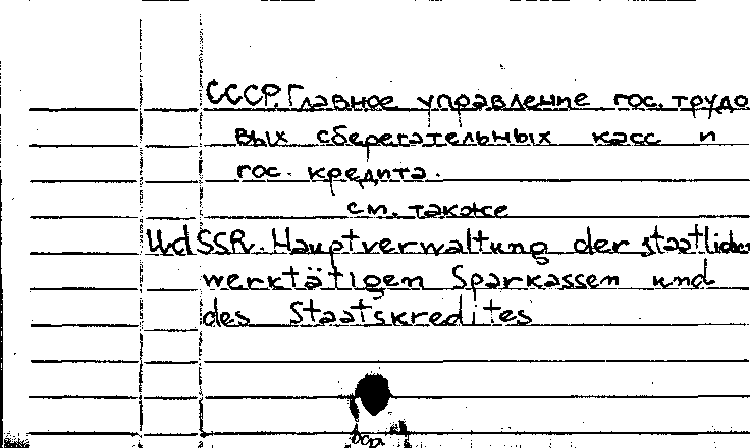 СССР. Главное управление гос. трудо
вых сберегательных касс и
гос. кредита.
см. также
UdSSR. Hauptverwaltung der staatlichen
werktätigen Sparkassen und
des Staatskredites